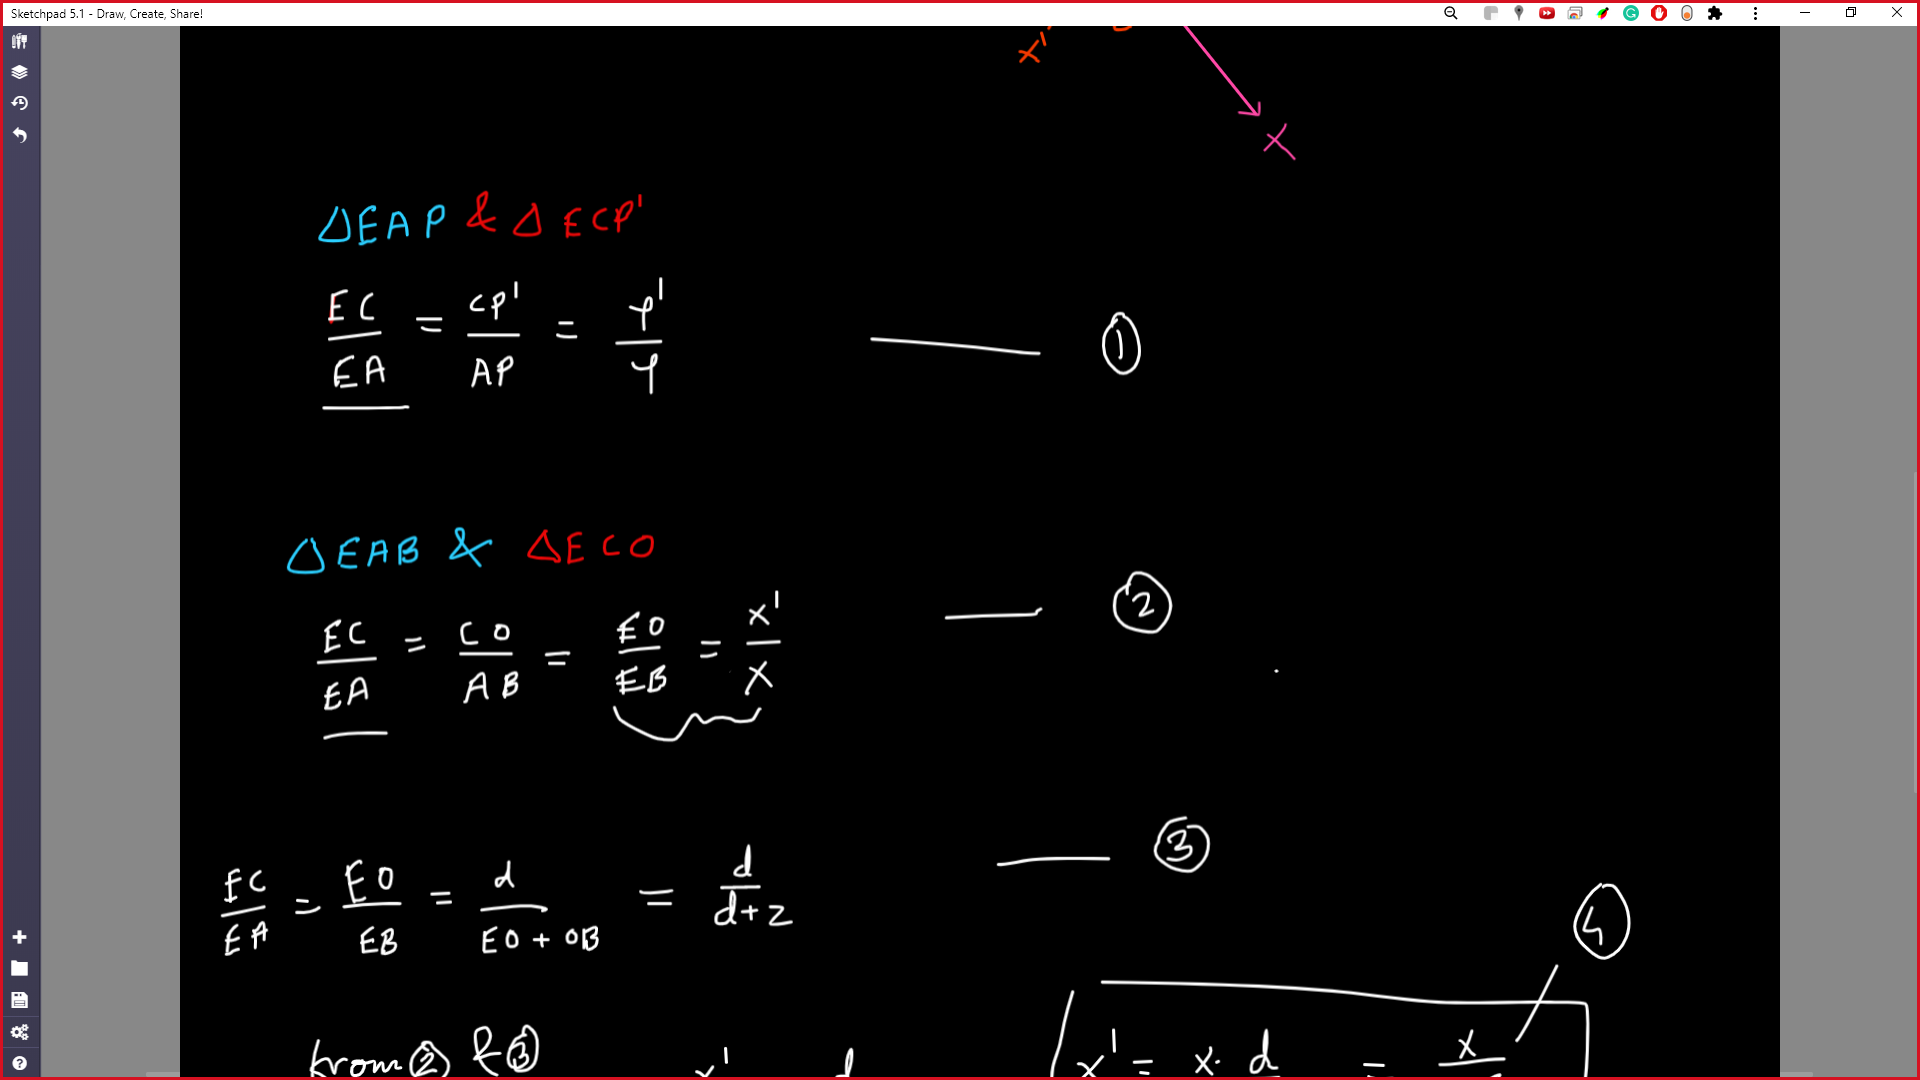 Sketchpad 5.1 - Draw, Create, Share!
x'
X
ΔEAP & ΔECP'
EC/EA = CP'/AP = Y'/Y —— ①
ΔEAB & ΔECO
EC/EA = CO/AB = EO/EB = X'/X —— ②
EC/EA = EO/EB = d/EO+OB = d/d+z —— ③
④
from ② & ③ x' d
x' = x· d = x